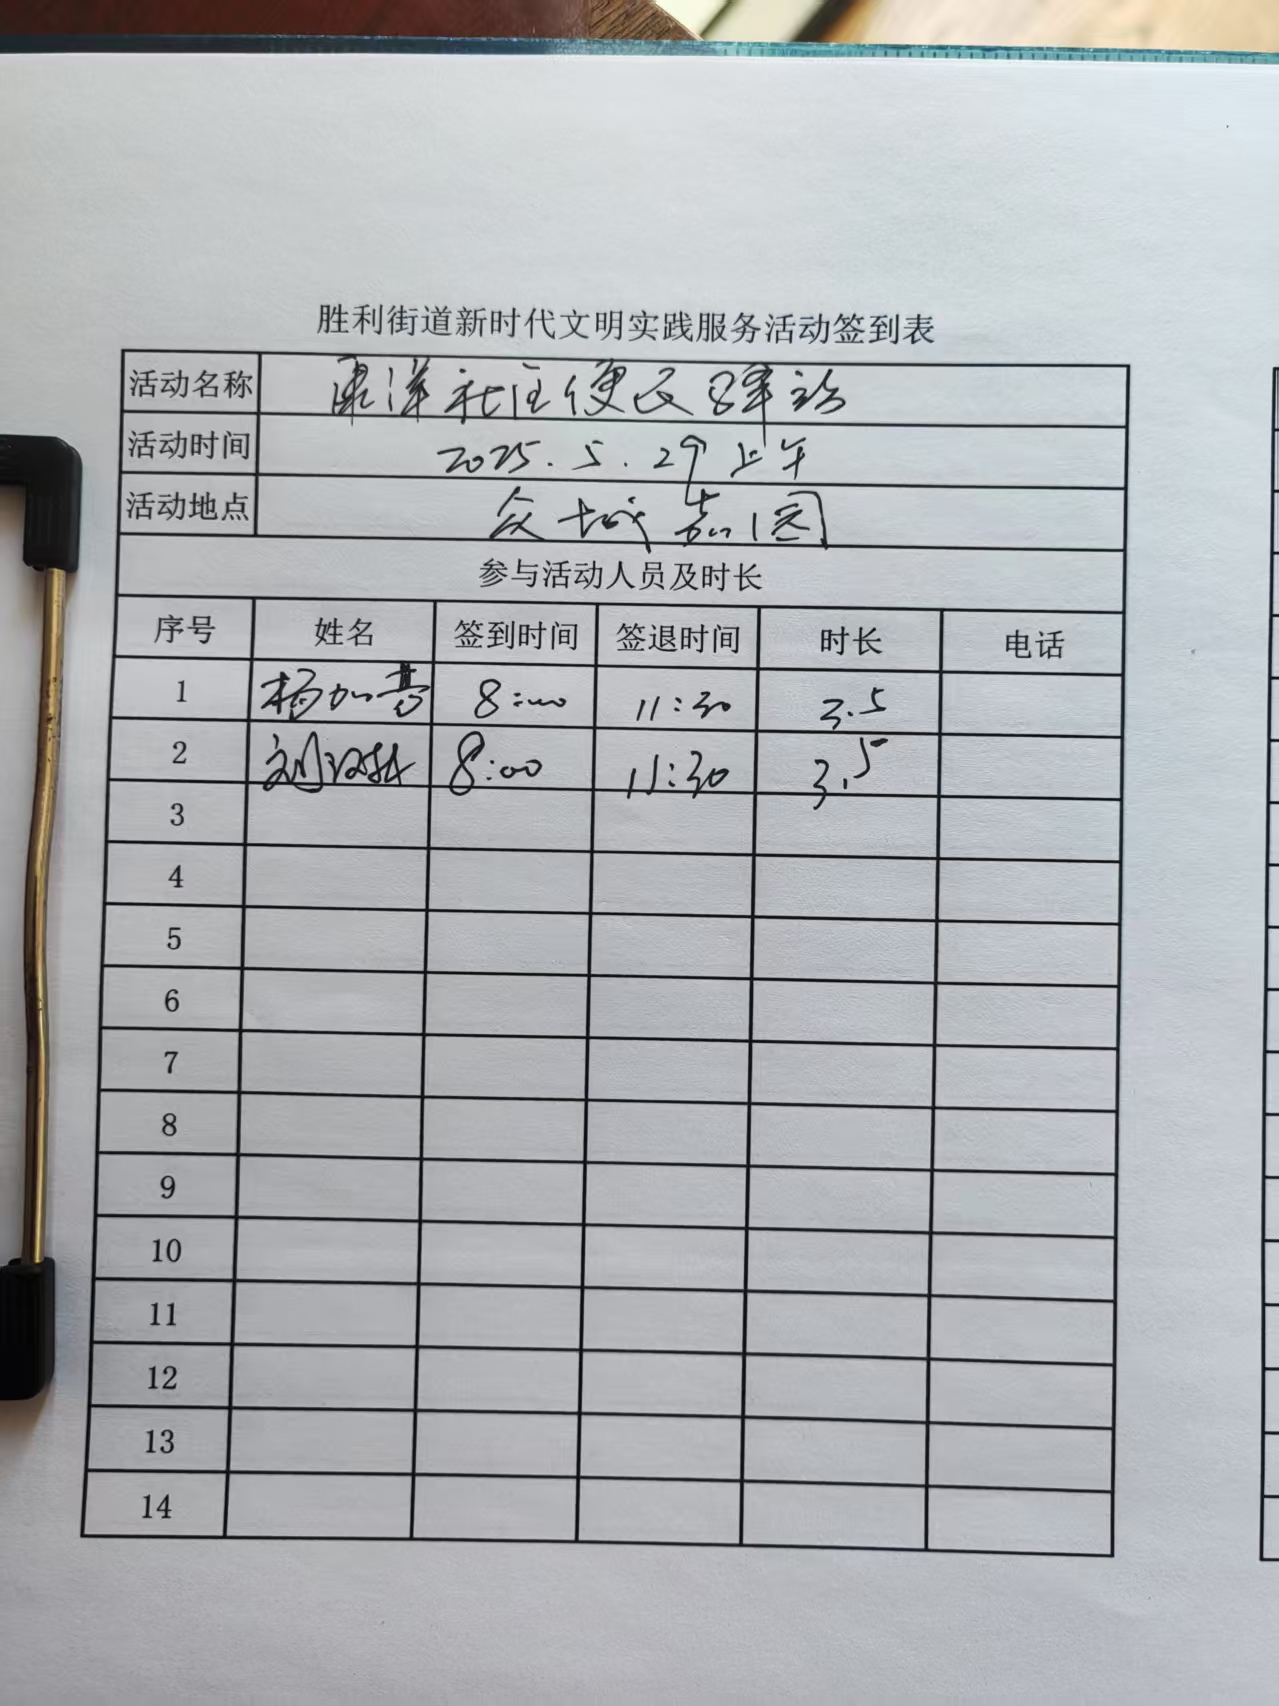 胜利街道新时代文明实践服务活动签到表
活动名称 洋社区便民驿站
活动时间 2025.5.29上午
活动地点 众城嘉园
参与活动人员及时长
序号 姓名 签到时间 签退时间 时长 电话
1 杨加亮 8:00 11:30 3.5
2 刘 8:00 11:30 3.5
3
4
5
6
7
8
9
10
11
12
13
14